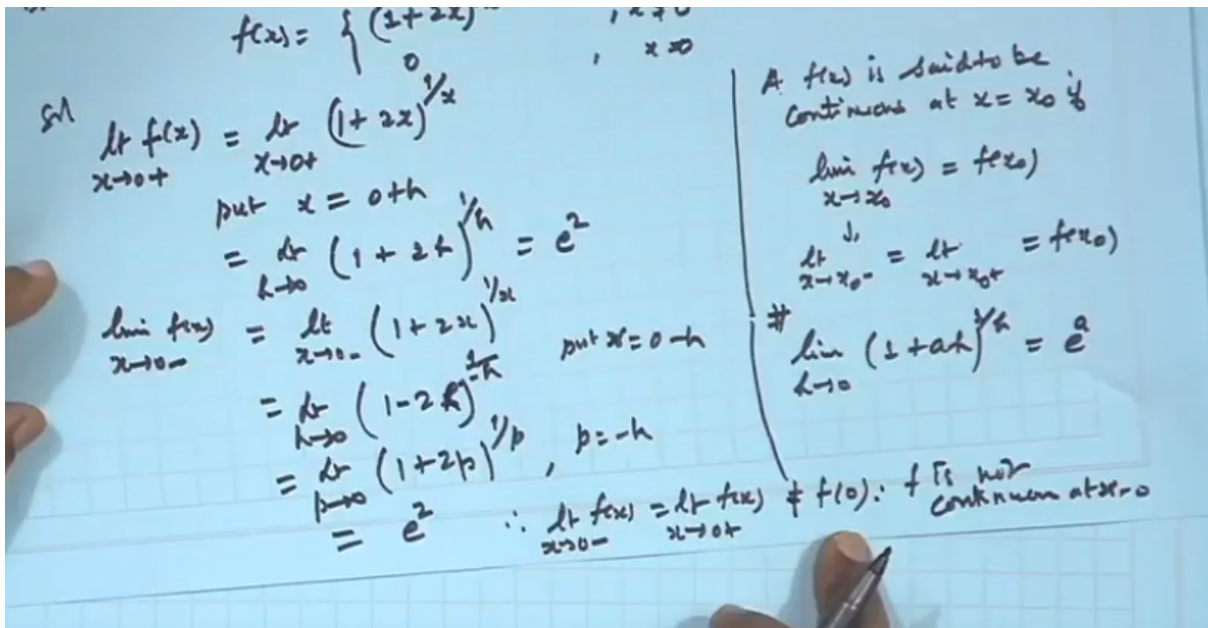 f(x) = { (1+2x) , x≠0
0 , x=0
Sol
lt x→0+ f(x) = lt x→0+ (1+2x)^1/x
put x = 0+h
= lt h→0 (1+2h)^1/h = e^2
lim x→0- f(x) = lt x→0- (1+2x)^1/x put x=0-h
= lt h→0 (1-2h)^1/-h
= lt p→0 (1+2p)^1/p , p=-h
= e^2 ∴ lt x→0- f(x) = lt x→0+ f(x) ≠ f(0) ∴ f is not
continuous at x=0
A f(x) is said to be
continuous at x = x0 if
lim x→x0 f(x) = f(x0)
↓
lt x→x0- = lt x→x0+ = f(x0)
# lim h→0 (1+ah)^1/h = e^a